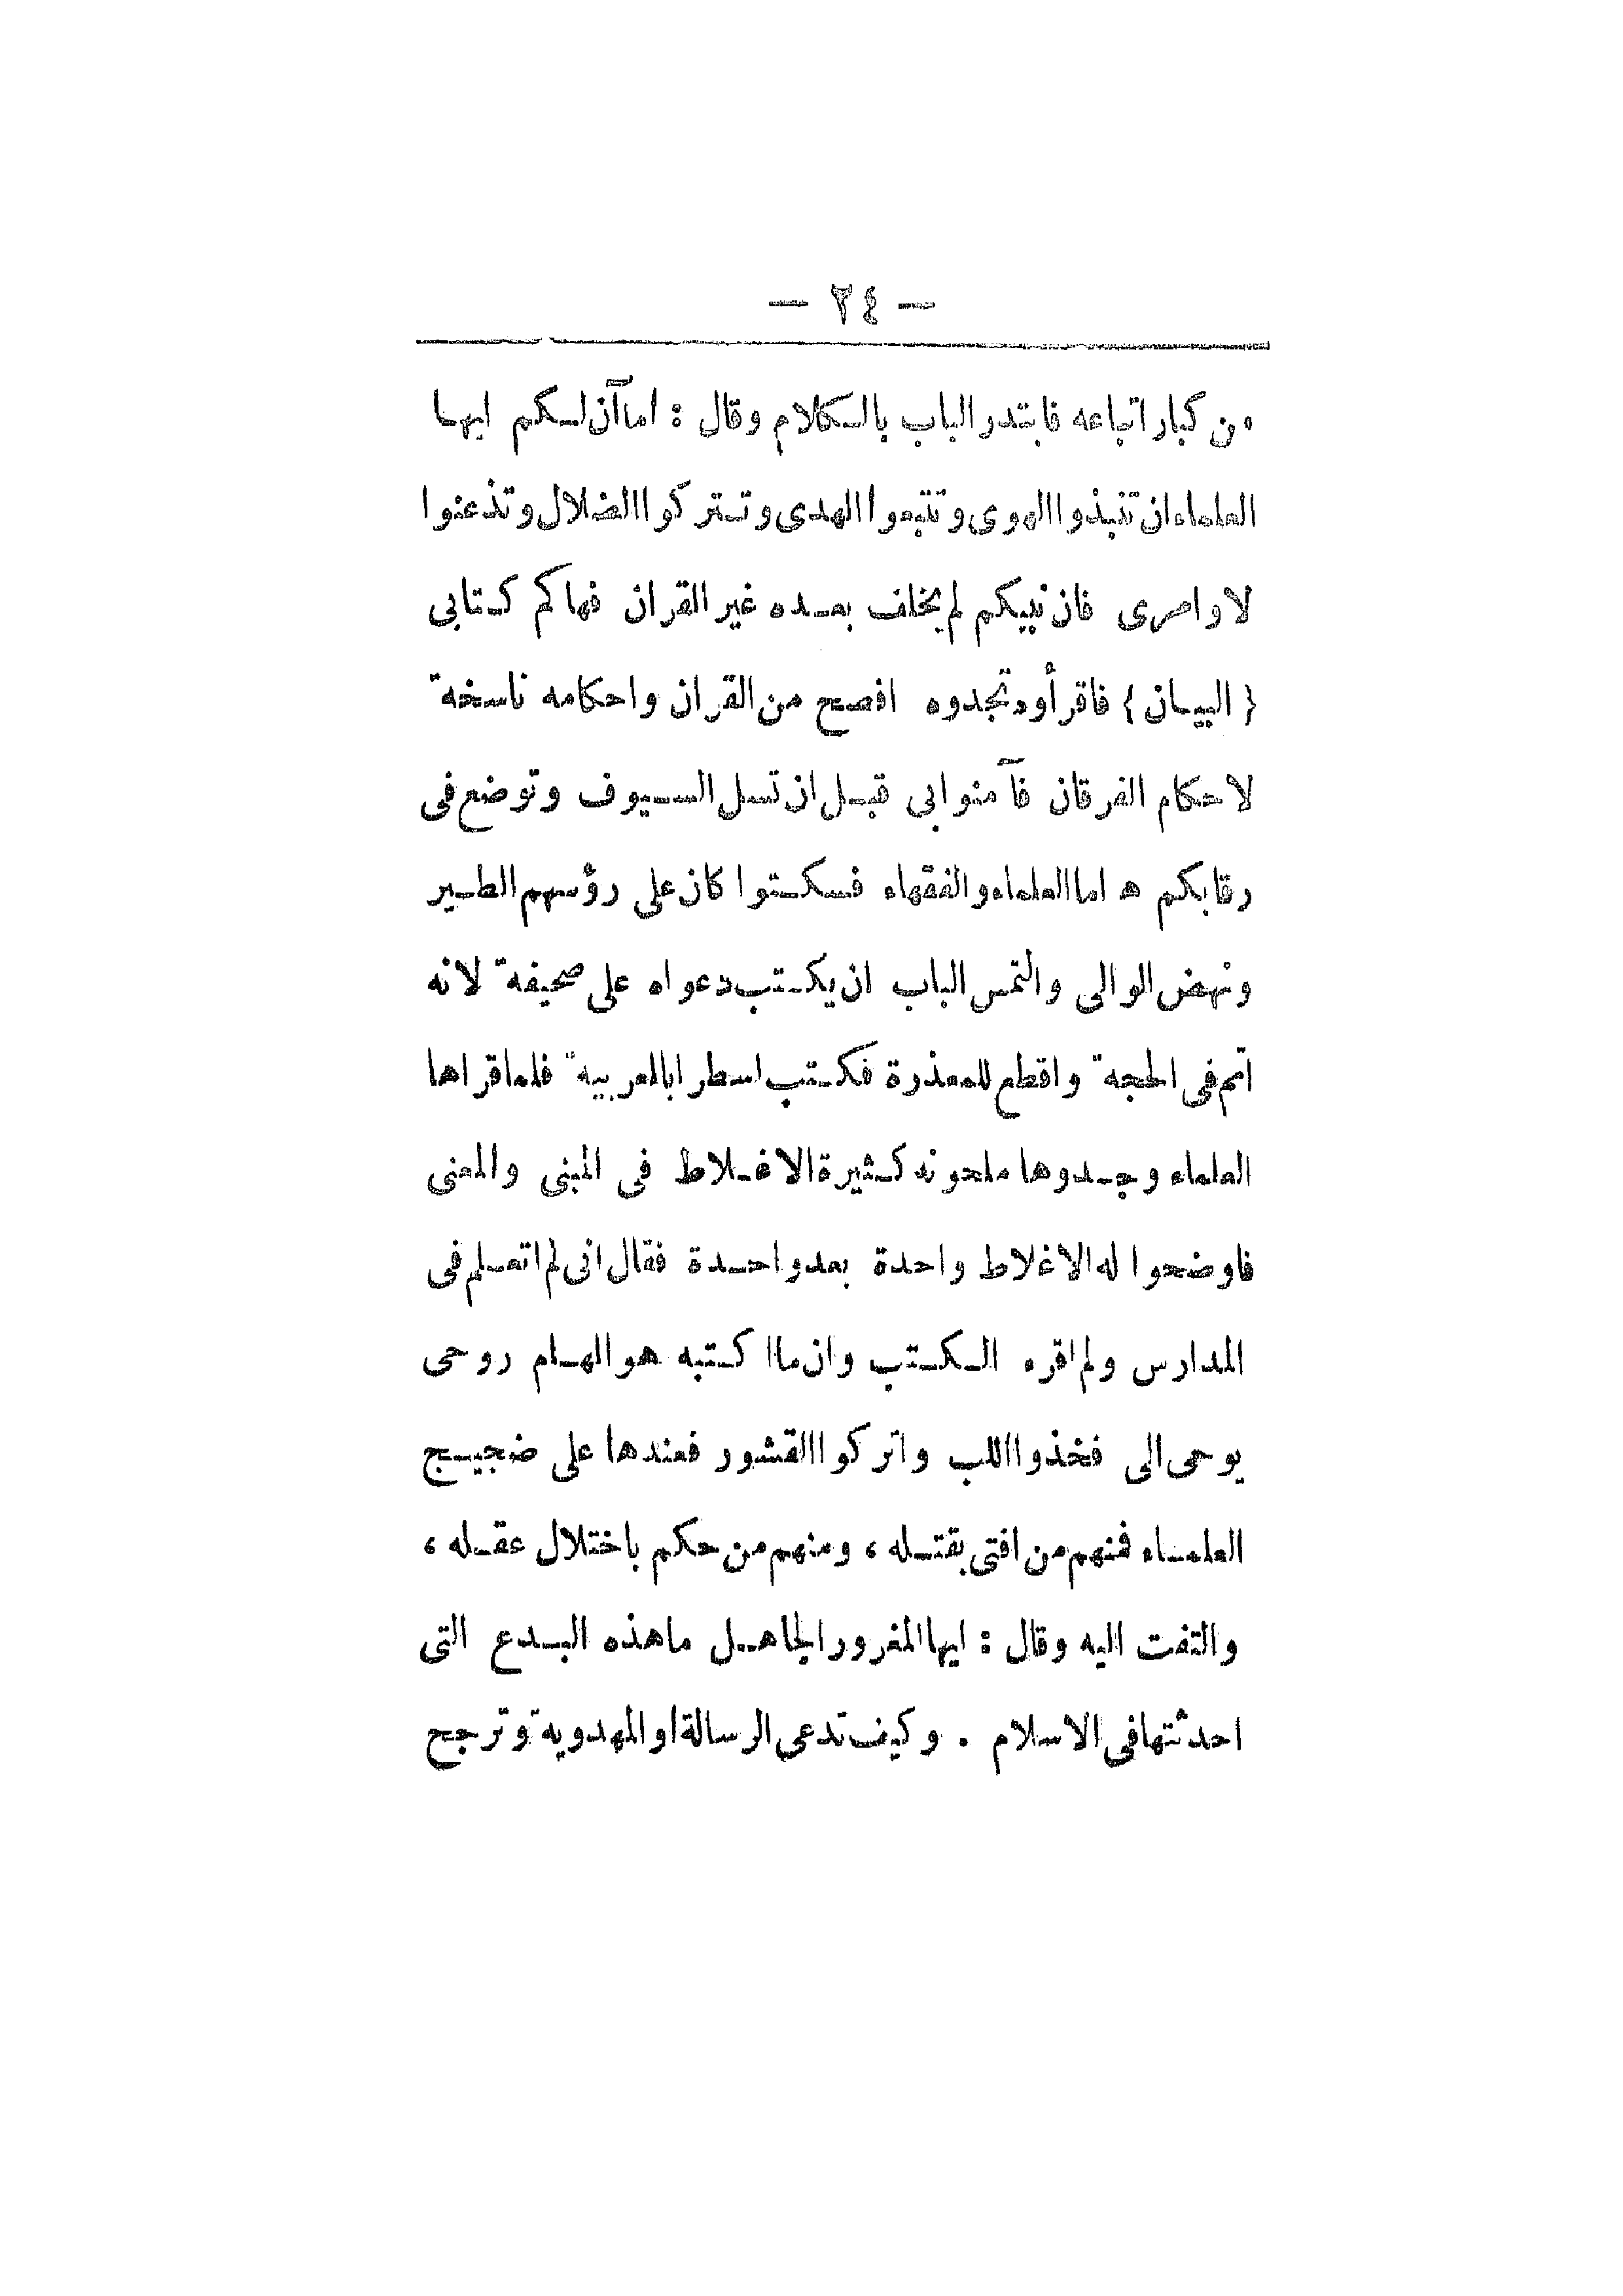 — ٢٤ —
من كبار اتباعه فابتدر الباب بالكلام وقال : اما آن لكم ايها
العلماء ان تنبذوا الهوى وتتبعوا الهدى وتتركوا الضلال وتذعنوا
لاوامرى فان نبيكم لم يخلف بعده غير القران فهاكم كتابى
{ البيان } فاقرأوه تجدوه افصح من القران واحكامه ناسخة
لاحكام الفرقان فآمنوا بى قبل ان تسل السيوف وتوضع فى
رقابكم ه اما العلماء والفقهاء فسكتوا كان على رؤسهم الطير
ونهض الوالى والتمس الباب ان يكتب دعواه على صحيفة لانه
اتم فى الحجة واقطع للمعذرة فكتب اسطرا بالعربية فلما قراها
العلماء وجدوها ملحونه كثيرة الاغلاط فى المبنى والمعنى
فاوضحوا له الاغلاط واحدة بعد واحدة فقال انى لم اتعلم فى
المدارس ولم اقره الكتب وان ما اكتبه هو الهام روحى
يوحى الى فخذوا اللب واتركوا القشور فعندها على ضجيج
العلماء فمنهم من افتى بقتله ، ومنهم من حكم باختلال عقله ،
والتفت اليه وقال : ايها المغرور الجاهل ما هذه البدع التى
احدثتها فى الاسلام . وكيف تدعى الرسالة او المهدوية وترجح